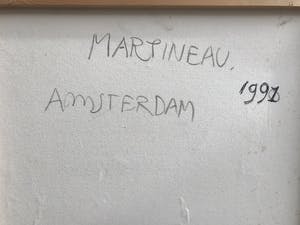 MARTINEAU.
AMSTERDAM 1991